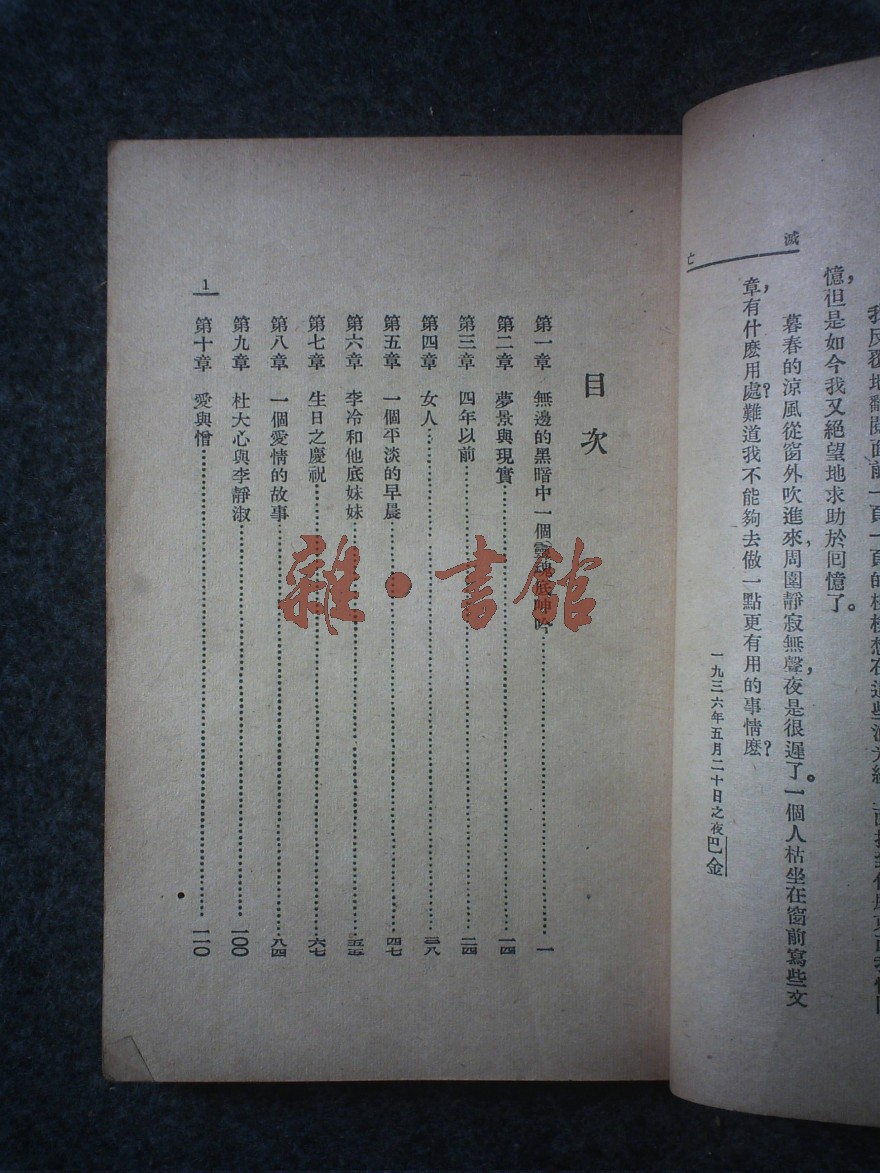 滅亡
憶,但是如今我又絕望地求助於囘憶了。
暮春的涼風從窗外吹進來,周圍靜寂無聲,夜是很遲了。一個人枯坐在窗前寫些文
章,有什麽用處?難道我不能夠去做一點更有用的事情麽?
一九三六年五月二十日之夜巴金
目次
第一章 無邊的黑暗中一個靈魂底呻吟……一
第二章 夢景與現實……一四
第三章 四年以前……二四
第四章 女人……三八
第五章 一個平淡的早晨……四七
第六章 李冷和他底妹妹……五三
第七章 生日之慶祝……六七
第八章 一個愛情的故事……八四
第九章 杜大心與李靜淑……一〇〇
第十章 愛與憎……一一〇
1
雜·書館